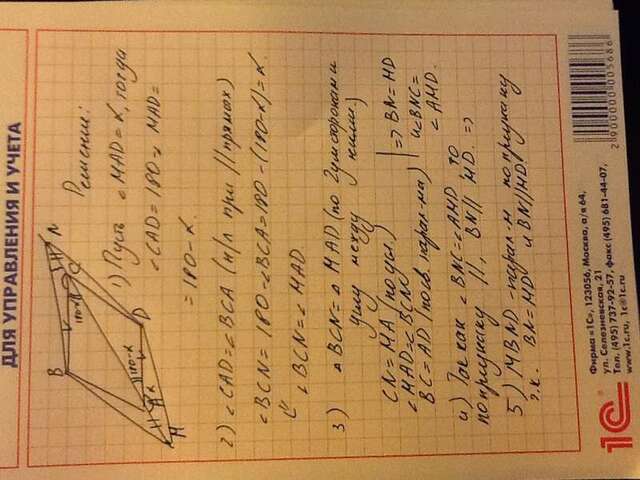 ДЛЯ УПРАВЛЕНИЯ И УЧЕТА
B
N
H
180-α
D
180-α
α
H
M
Решение:
1) Пусть ∠MAD=α, тогда
∠CAD=180-∠MAD=
=180-α.
2) ∠CAD=∠BCA (н/л при // прямых)
∠BCN=180-∠BCA=180-(180-α)=α.
∠BCN=∠MAD
3) ▵BCN=▵MAD (по 2ум сторонам и
углу между ними)
CN=MA (по усл.)
∠MAD=∠BCN
BC=AD (по св. парал-ма)
=> BN=MD
и ∠BNC=
∠AMD.
4) Так как ∠BNC=∠AMD то
по признаку //, BN // MD. =>
5) MBND-парал-м по признаку
т.к. BN=MD и BN//MD
1C
Фирма «1С», 123056, Москва, а/я 64,
ул. Селезневская, 21
Тел. (495) 737-92-57, факс (495) 681-44-07,
www.1c.ru, 1c@1c.ru
2900000005686